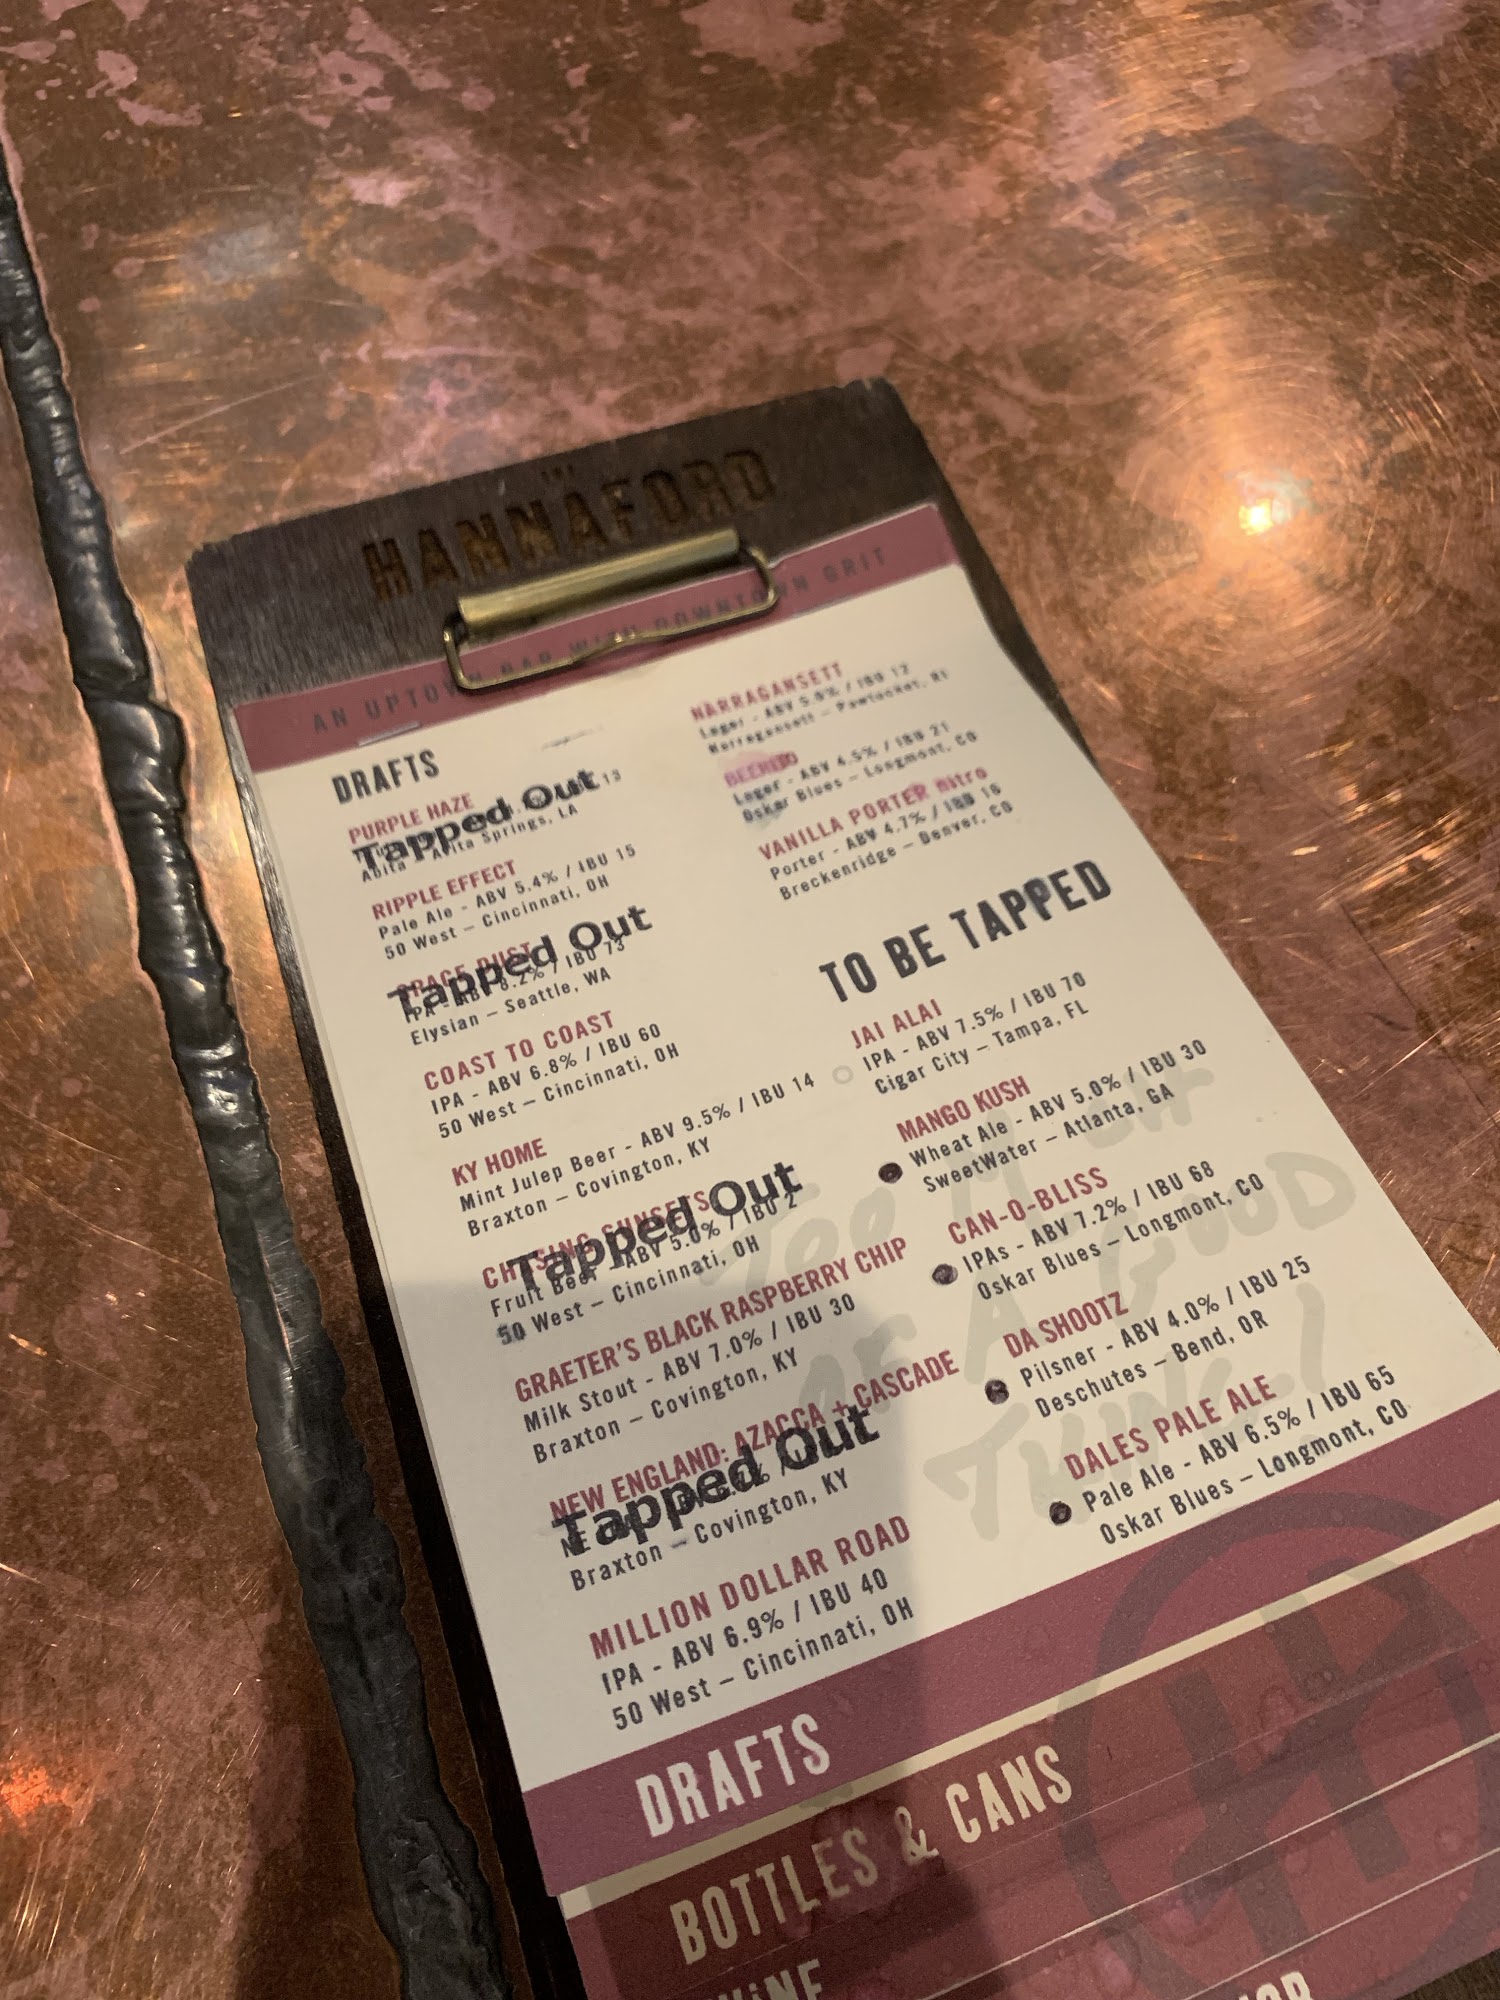 THE
HANNAFORD
AN UPTOWN BAR WITH DOWNTOWN GRIT
DRAFTS
PURPLE HAZE
Tapped Out
13
Abita – Abita Springs, LA
RIPPLE EFFECT
Pale Ale - ABV 5.4% / IBU 15
50 West – Cincinnati, OH
SPACE DUST
Tapped Out
IPA - ABV 8.2% / IBU 73
Elysian – Seattle, WA
COAST TO COAST
IPA - ABV 6.8% / IBU 60
50 West – Cincinnati, OH
KY HOME
Mint Julep Beer - ABV 9.5% / IBU 14
Braxton – Covington, KY
CHASING SUNSETS
Tapped Out
Fruit Beer - ABV 5.0% / IBU 2
50 West – Cincinnati, OH
GRAETER'S BLACK RASPBERRY CHIP
Milk Stout - ABV 7.0% / IBU 30
Braxton – Covington, KY
NEW ENGLAND: AZACCA + CASCADE
Tapped Out
NE
Braxton – Covington, KY
MILLION DOLLAR ROAD
IPA - ABV 6.9% / IBU 40
50 West – Cincinnati, OH
NARRAGANSETT
Lager - ABV 5.0% / IBU 12
Narragansett – Pawtucket, RI
BEERITO
Lager - ABV 4.5% / IBU 21
Oskar Blues – Longmont, CO
VANILLA PORTER nitro
Porter - ABV 4.7% / IBU 16
Breckenridge – Denver, CO
TO BE TAPPED
JAI ALAI
IPA - ABV 7.5% / IBU 70
Cigar City – Tampa, FL
MANGO KUSH
Wheat Ale - ABV 5.0% / IBU 30
SweetWater – Atlanta, GA
CAN-O-BLISS
IPAs - ABV 7.2% / IBU 68
Oskar Blues – Longmont, CO
DA SHOOTZ
Pilsner - ABV 4.0% / IBU 25
Deschutes – Bend, OR
DALES PALE ALE
Pale Ale - ABV 6.5% / IBU 65
Oskar Blues – Longmont, CO
TOO MUCH
OF A GOOD
THING!
DRAFTS
BOTTLES & CANS
WINE